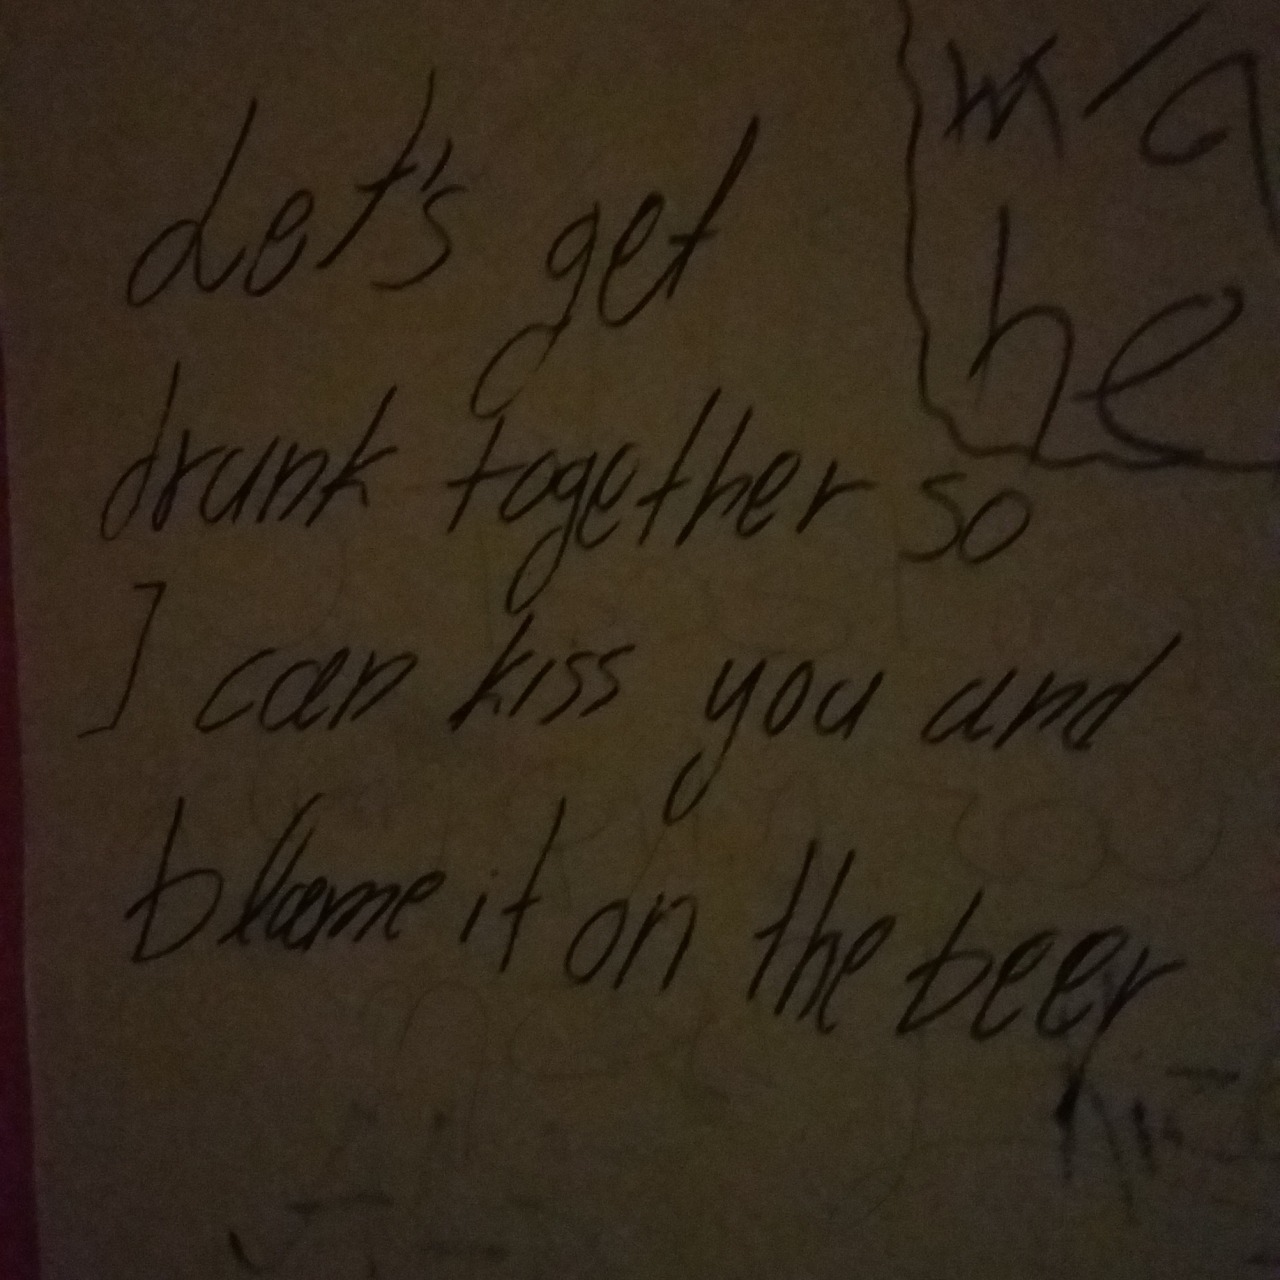 Let's get
drunk together so
I can kiss you and
blame it on the beer
he